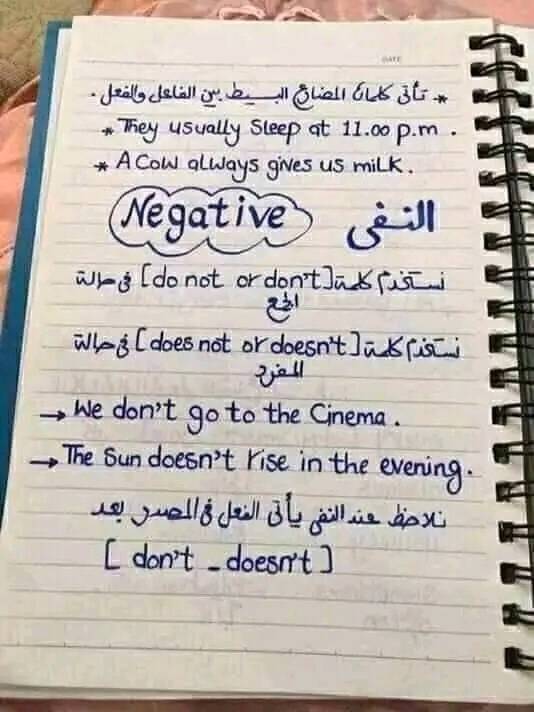 DATE
* تأتى كلمات المضارع البسيط بين الفاعل والفعل .
* They usually Sleep at 11.00 p.m .
* A Cow always gives us milk .
Negative النفى
نستخدم كلمة [do not or don't] فى حالة
الجمع
نستخدم كلمة [does not or doesn't] فى حالة
المفرد
→ We don't go to the Cinema .
→ The Sun doesn't rise in the evening .
نلاحظ عند النفى يأتى الفعل فى المصدر بعد
[ don't _ doesn't ]